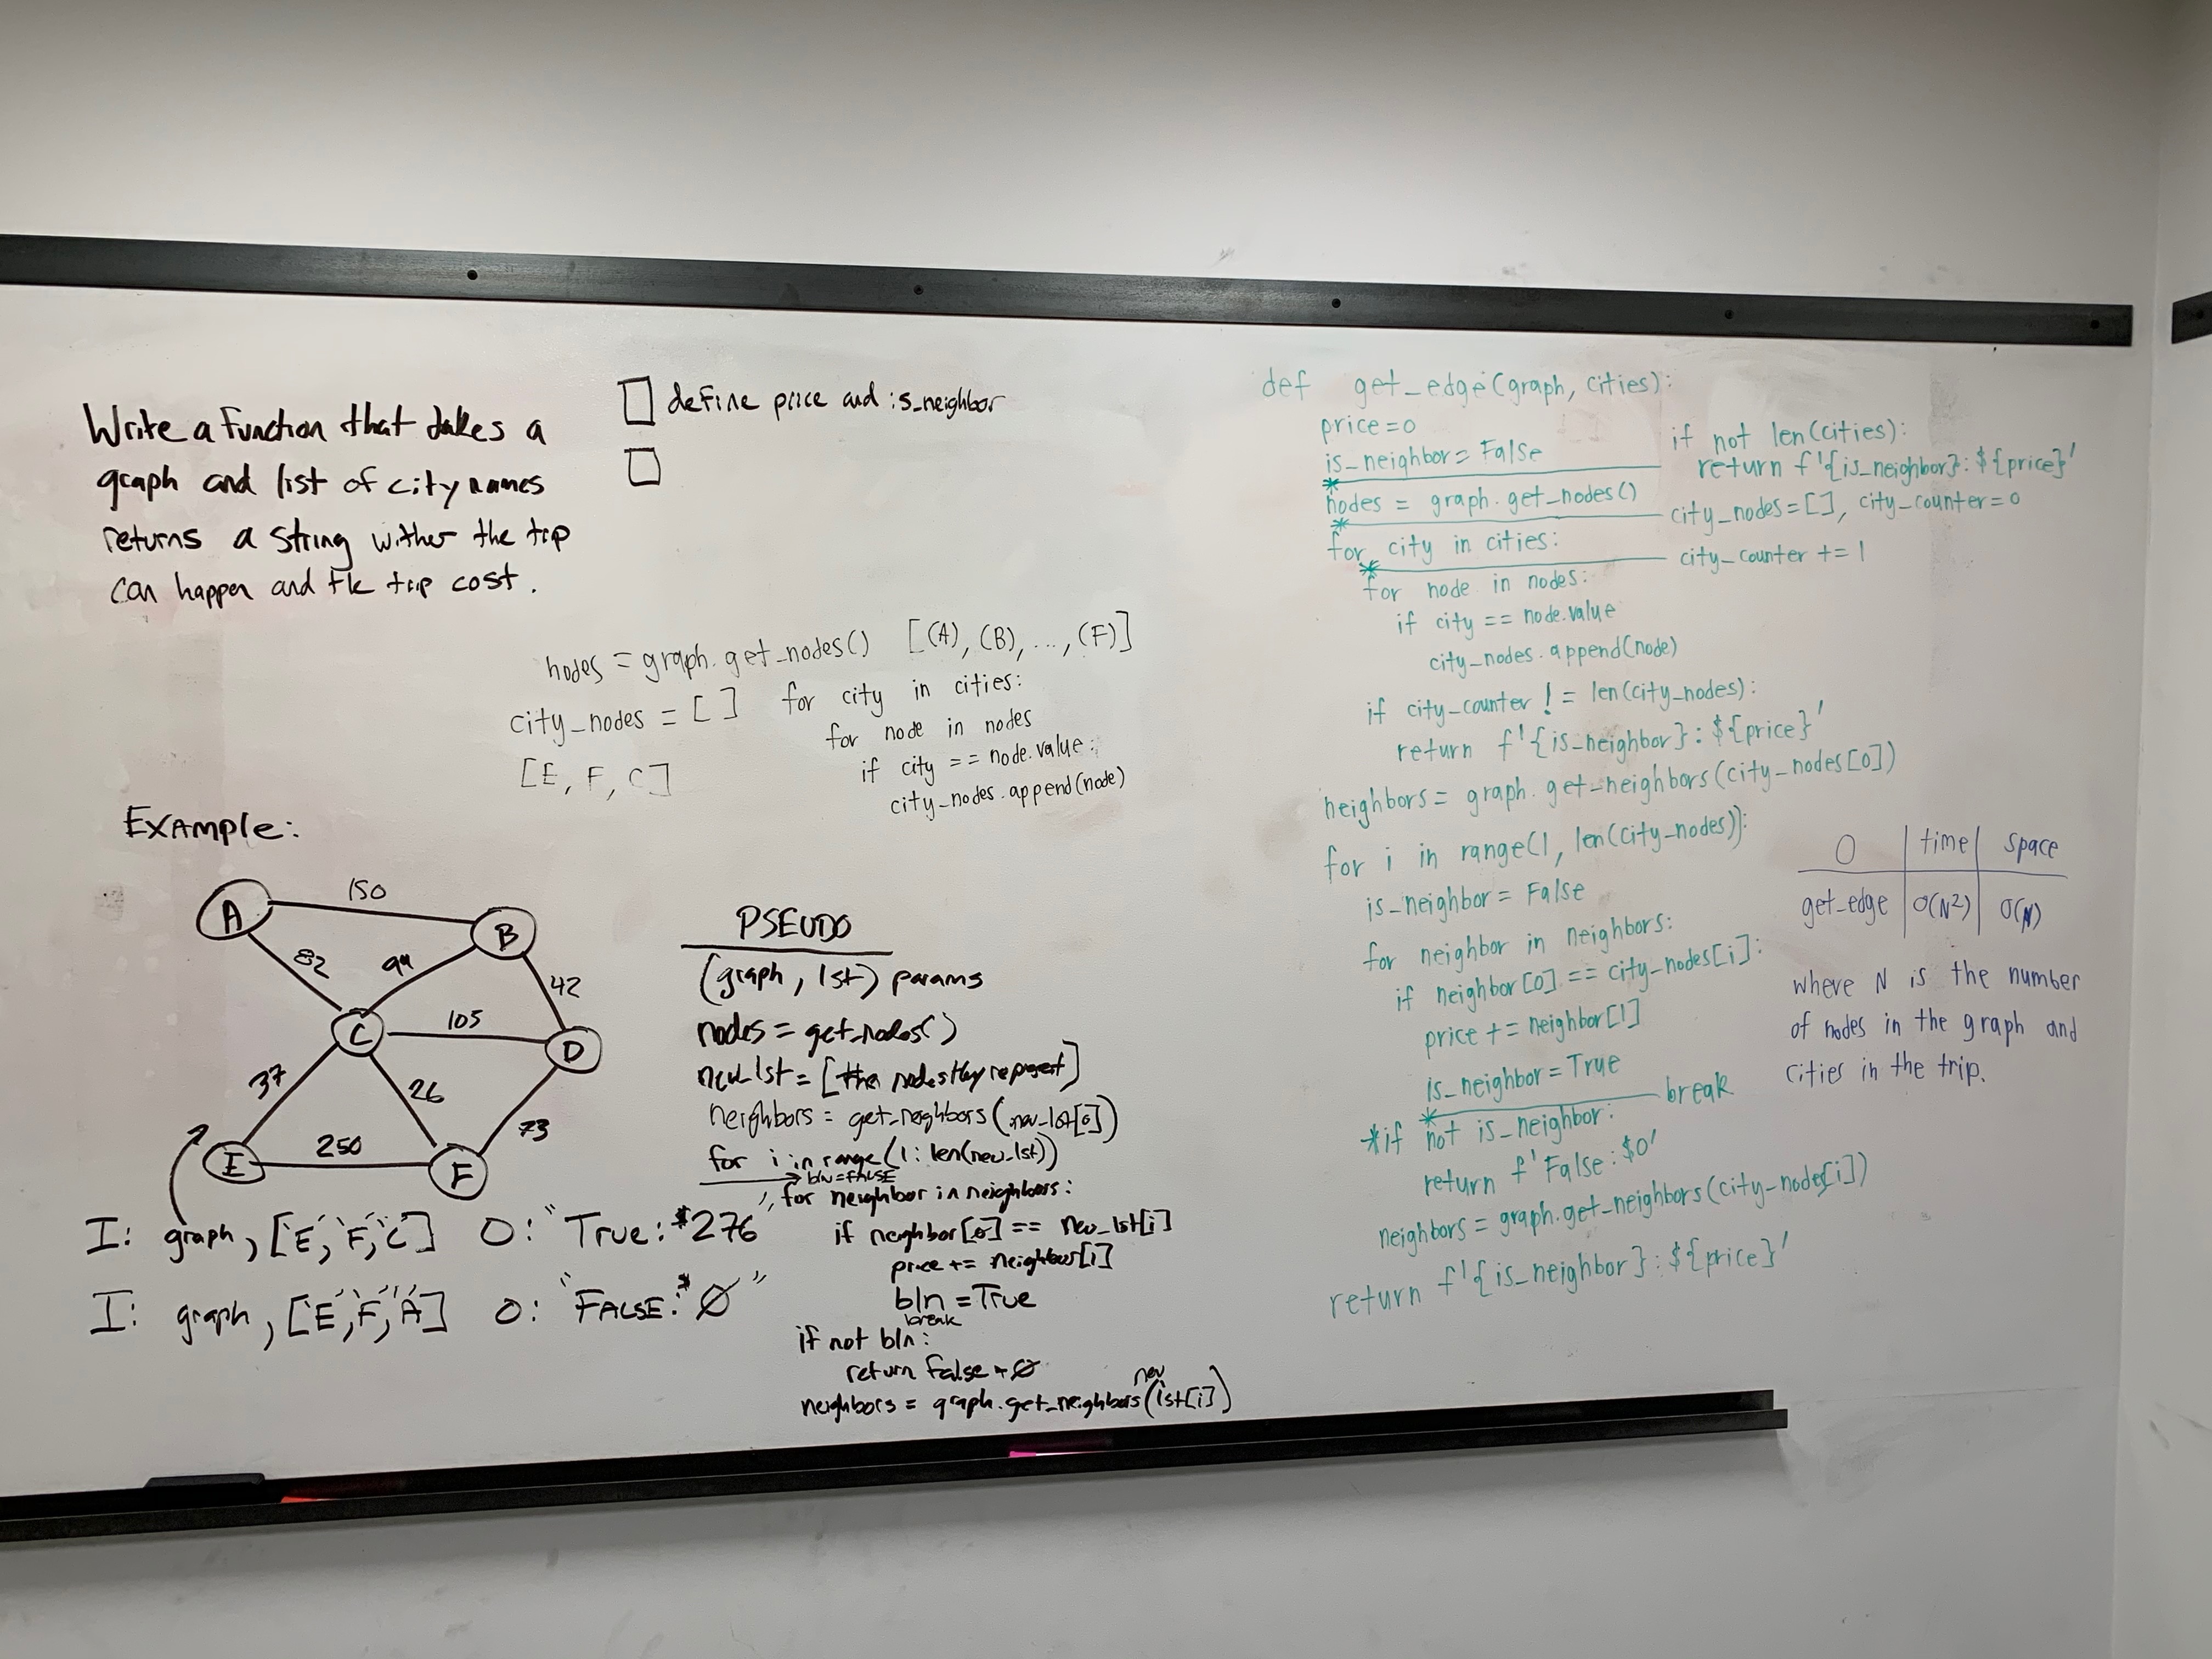 Write a function that takes a
graph and list of city names
returns a string wither the trip
can happen and the trip cost.
define price and is_neighbor
nodes = graph.get_nodes() [(A), (B), ..., (F)]
city_nodes = [ ] for city in cities:
for node in nodes
if city == node.value:
city_nodes.append(node)
[E, F, C]
Example:
A
150
B
82
94
42
C
105
D
37
26
73
E
250
F
I: graph, ['E', 'F', 'C'] O: "True: $276"
I: graph, ['E', 'F', 'A'] O: "FALSE: $0"
PSEUDO
(graph, lst) params
nodes = get_nodes()
new_lst = [the nodes they represent]
neighbors = get_neighbors(new_lst[0])
for i in range(1: len(new_lst))
bln = FALSE
for neighbor in neighbors:
if neighbor[0] == new_lst[i]
price += neighbor[1]
bln = True
break
if not bln:
return false + 0
neighbors = graph.get_neighbors(new lst[i])
def get_edge(graph, cities):
price=0
is_neighbor= False
if not len(cities):
return f'{is_neighbor}: ${price}'
* nodes = graph.get_nodes()
city_nodes=[], city_counter=0
* for city in cities:
city_counter += 1
* for node in nodes:
if city == node.value
city_nodes.append(node)
if city_counter != len(city_nodes):
return f'{is_neighbor}: ${price}'
neighbors= graph.get_neighbors(city_nodes[0])
for i in range(1, len(city_nodes)):
is_neighbor = False
for neighbor in neighbors:
if neighbor[0] == city_nodes[i]:
price += neighbor[1]
is_neighbor=True
* break
*if not is_neighbor:
return f'False: $0'
neighbors = graph.get_neighbors(city_nodes[i])
return f'{is_neighbor}: ${price}'
O time space
get_edge O(N²) O(N)
where N is the number
of nodes in the graph and
cities in the trip.